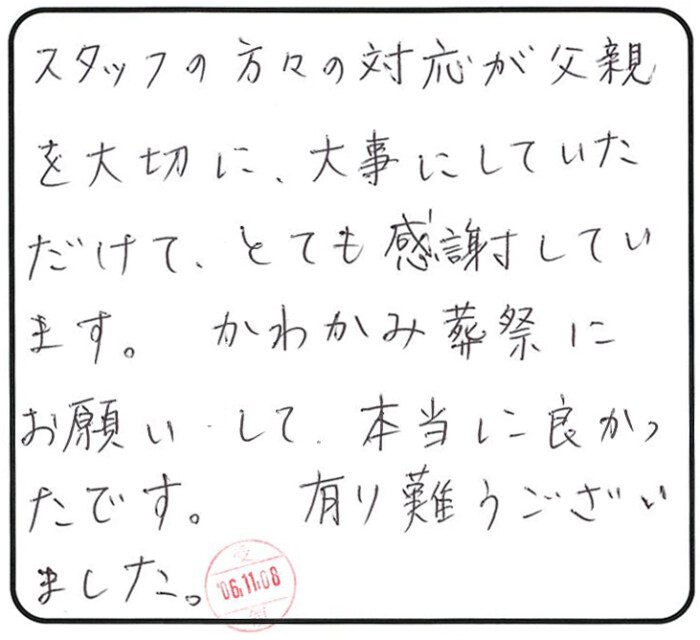 スタッフの方々の対応が父親
を大切に、大事にしていた
だけて、とても感謝してい
ます。 かわかみ葬祭に
お願いして、本当に良かっ
たです。 有り難うござい
ました。
'06.11.08